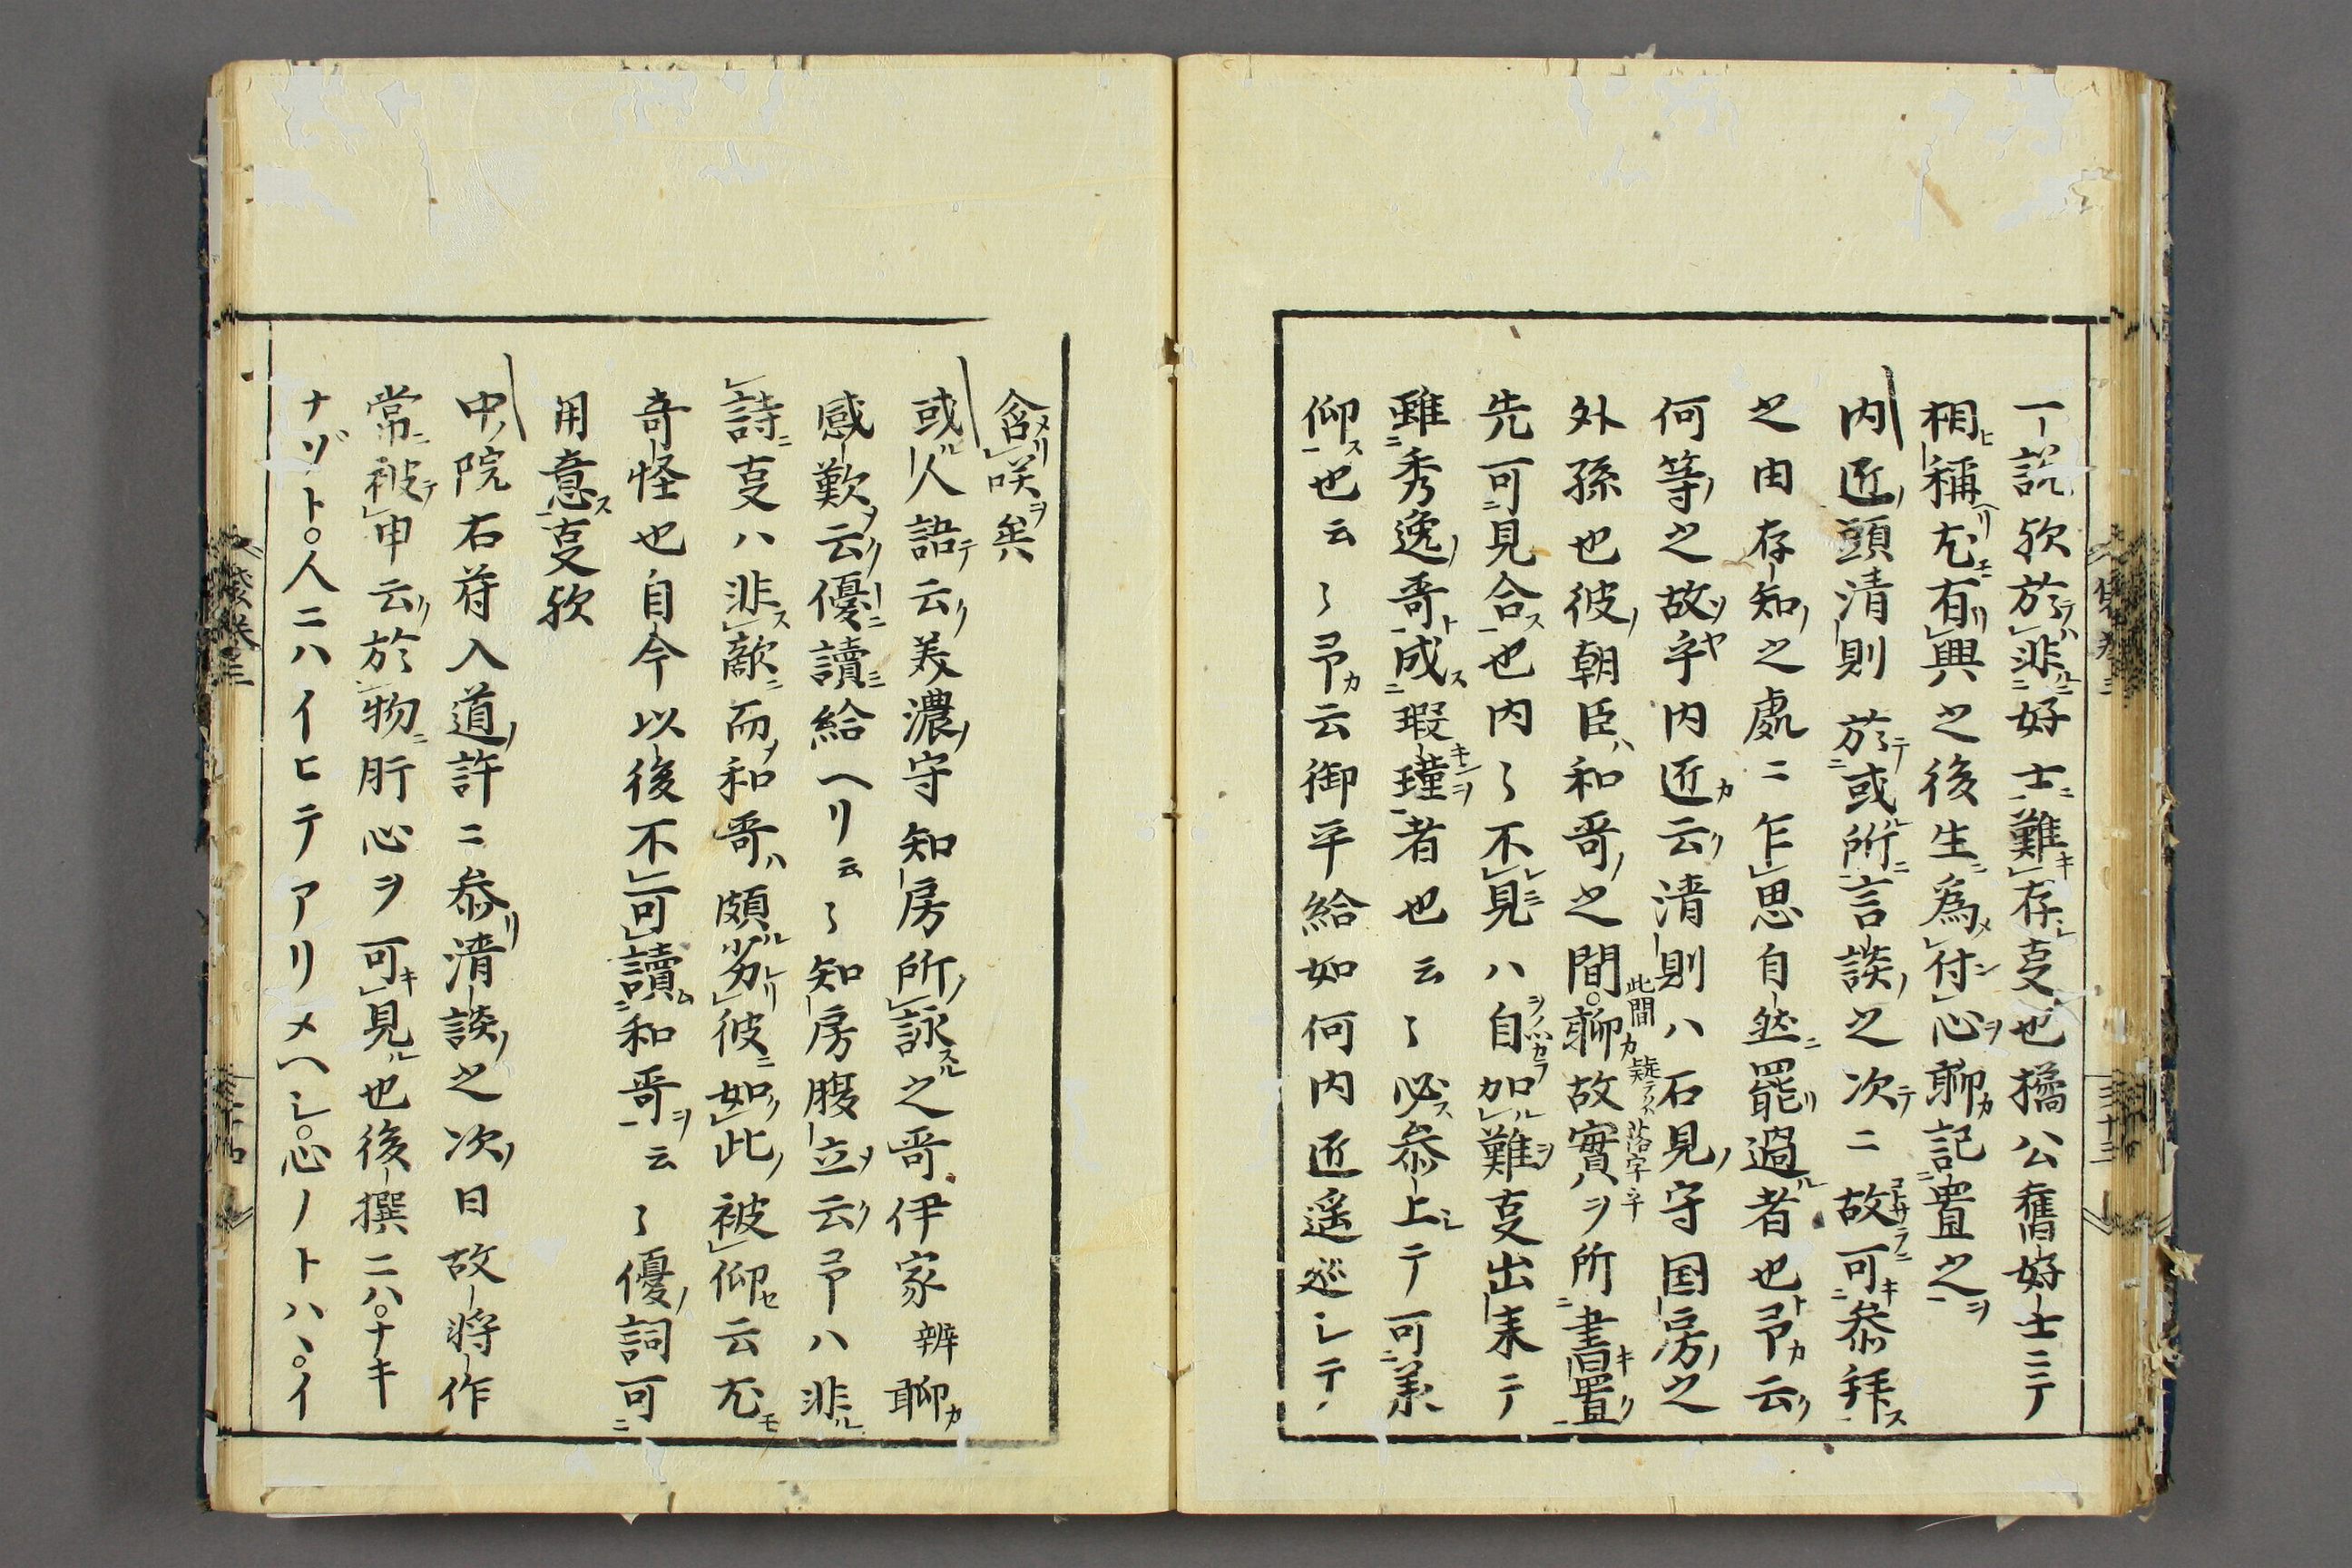 一説歟於非好士難存支也橘公舊好士ニテ
相稱尤有興之後生為付心聊記置之
内匠頭清則於或所言談之次ニ故可参拜
之由存知之處ニ乍思自然罷過者也予云
何等之故乎内匠云清則ハ石見守国房之
外孫也彼朝臣和哥之間聊故實ヲ所書置
此間疑落字乎
先可見合也内々不見ハ自加難支出来テ
雖秀逸哥成瑕瑾者也云々必参上テ可兼
仰也云々予云御平給如何内匠逡巡シテ
含咲矣
或人語云美濃守知房所詠之哥伊家辨聊
感歎云優讀給ヘリ云々知房腹立云予ハ非
詩支ハ非敵而和哥頗劣彼如此被仰云尤
奇怪也自今以後不可讀和哥云々優詞可
用意支歟
中院右府入道許ニ参清談之次日故将作
常被申云於物肝心ヲ可見也後撰ニハナキ
ナゾト人ニハイヒテアリメヘシ心ノトハヽイ